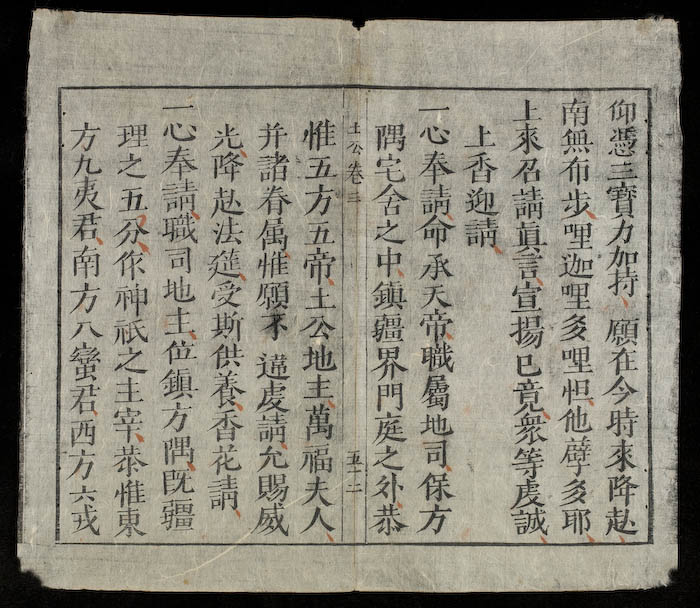 仰憑三寶力加持、願在今時來降赴、
南無布步、哩迦哩、多哩怛、他櫱、多耶、
上來召請眞言、宣揚已竟、衆等虔誠、
上香迎請、
一心奉請、命承天帝、職屬地司、保方
隅宅舍之中、鎮疆界門庭之外、恭
土公卷三
五十二
惟五方五帝、土公地主、萬福夫人、
并諸眷属、惟願不違虔請、允賜威
光、降赴法筵、受斯供養、香花請、
一心奉請、職司地主、位鎮方隅、既疆
理之五分、作神祇之主宰、恭惟東
方九夷君、南方八蠻君、西方六戎